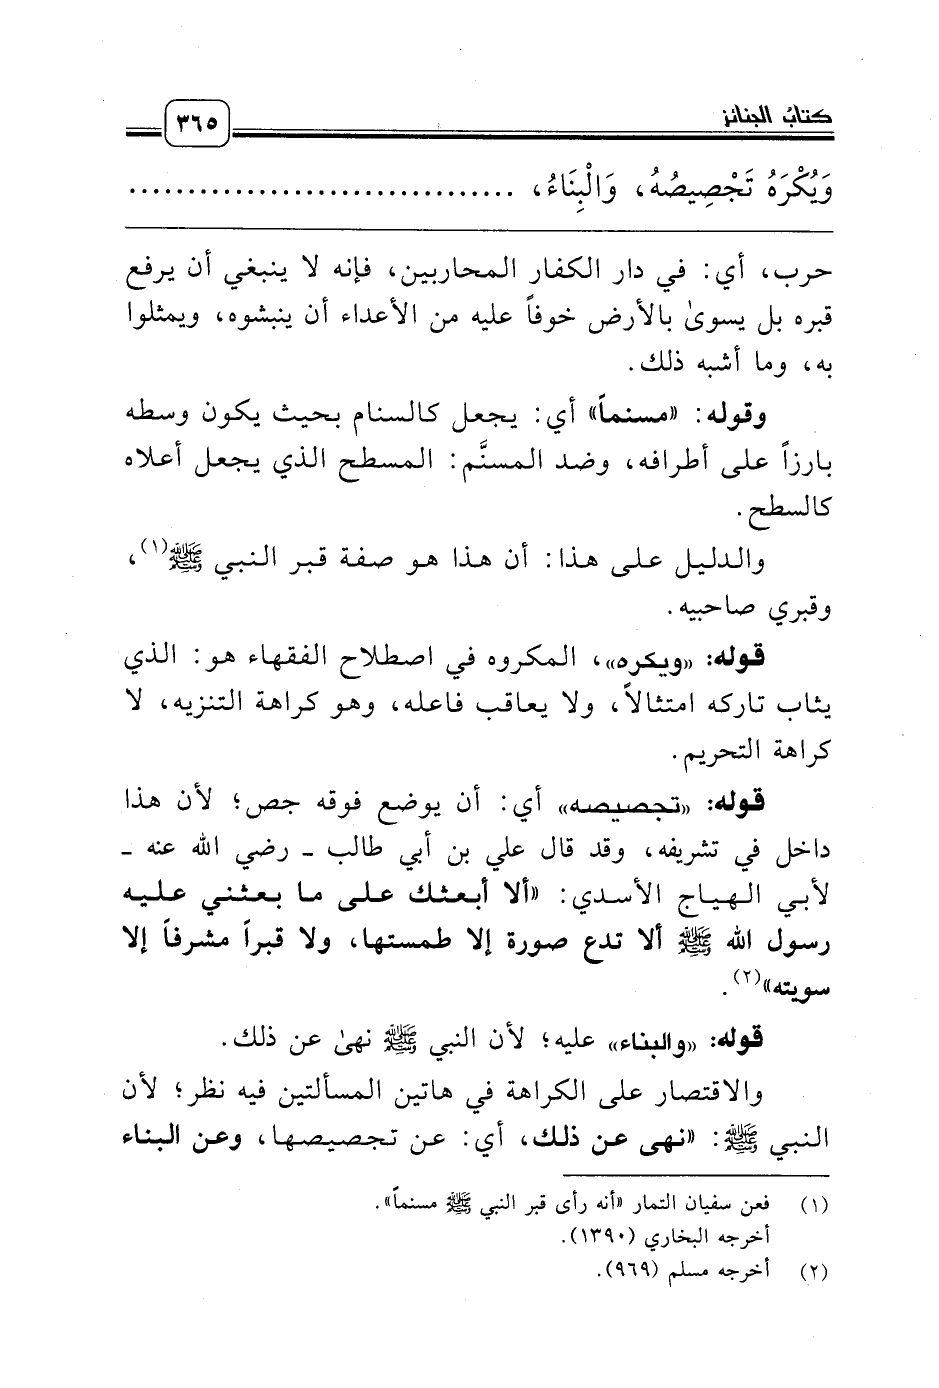 كتاب الجنائز
٣٦٥
وَيُكْرَهُ تَجْصِيصُهُ، وَالْبِنَاءُ، ................................
حرب، أي: في دار الكفار المحاربين، فإنه لا ينبغي أن يرفع
قبره بل يسوىٰ بالأرض خوفاً عليه من الأعداء أن ينبشوه، ويمثلوا
به، وما أشبه ذلك.
وقوله: «مسنماً» أي: يجعل كالسنام بحيث يكون وسطه
بارزاً على أطرافه، وضد المسنَّم: المسطح الذي يجعل أعلاه
كالسطح.
والدليل على هذا: أن هذا هو صفة قبر النبي ﷺ(١)،
وقبري صاحبيه.
قوله: «ويكره»، المكروه في اصطلاح الفقهاء هو: الذي
يثاب تاركه امتثالاً، ولا يعاقب فاعله، وهو كراهة التنزيه، لا
كراهة التحريم.
قوله: «تجصيصه» أي: أن يوضع فوقه جص؛ لأن هذا
داخل في تشريفه، وقد قال علي بن أبي طالب ـ رضي الله عنه ـ
لأبي الهياج الأسدي: «ألا أبعثك على ما بعثني عليه
رسول الله ﷺ ألا تدع صورة إلا طمستها، ولا قبراً مشرفاً إلا
سويته»(٢).
قوله: «والبناء» عليه؛ لأن النبي ﷺ نهىٰ عن ذلك.
والاقتصار على الكراهة في هاتين المسألتين فيه نظر؛ لأن
النبي ﷺ: «نهى عن ذلك، أي: عن تجصيصها، وعن البناء
(١) فعن سفيان التمار «أنه رأى قبر النبي ﷺ مسنماً».
أخرجه البخاري (١٣٩٠).
(٢) أخرجه مسلم (٩٦٩).